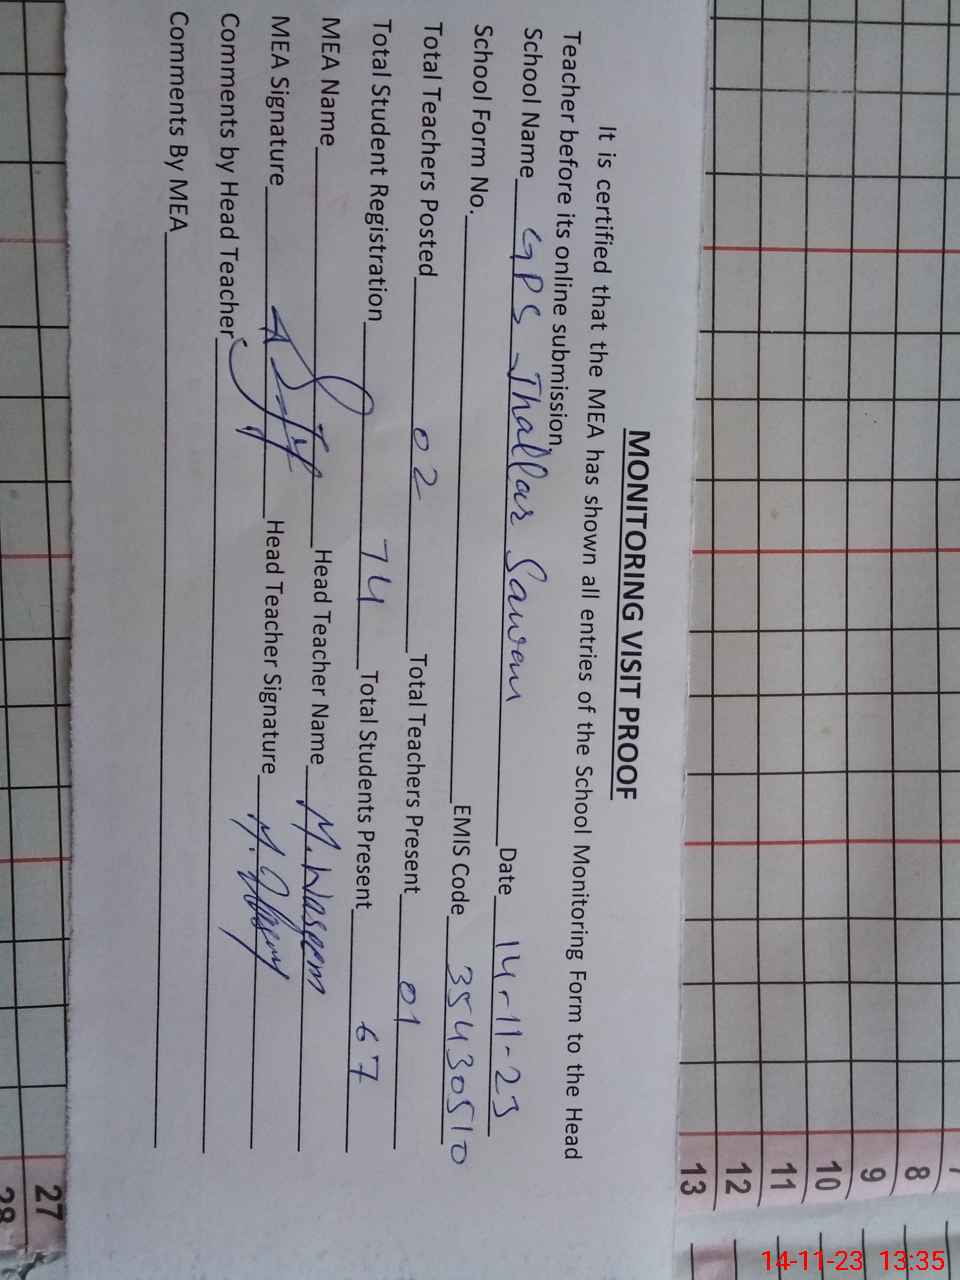 MONITORING VISIT PROOF
It is certified that the MEA has shown all entries of the School Monitoring Form to the Head
Teacher before its online submission.
School Name GPS Thallar Sawan Date 14-11-23
School Form No. EMIS Code 35430510
Total Teachers Posted 02 Total Teachers Present 01
Total Student Registration 74 Total Students Present 67
MEA Name Head Teacher Name M. Waseem
MEA Signature Head Teacher Signature M. Waseem
Comments by Head Teacher
Comments By MEA
7
8
9
10
11
12
13
27
28
14-11-23 13:35